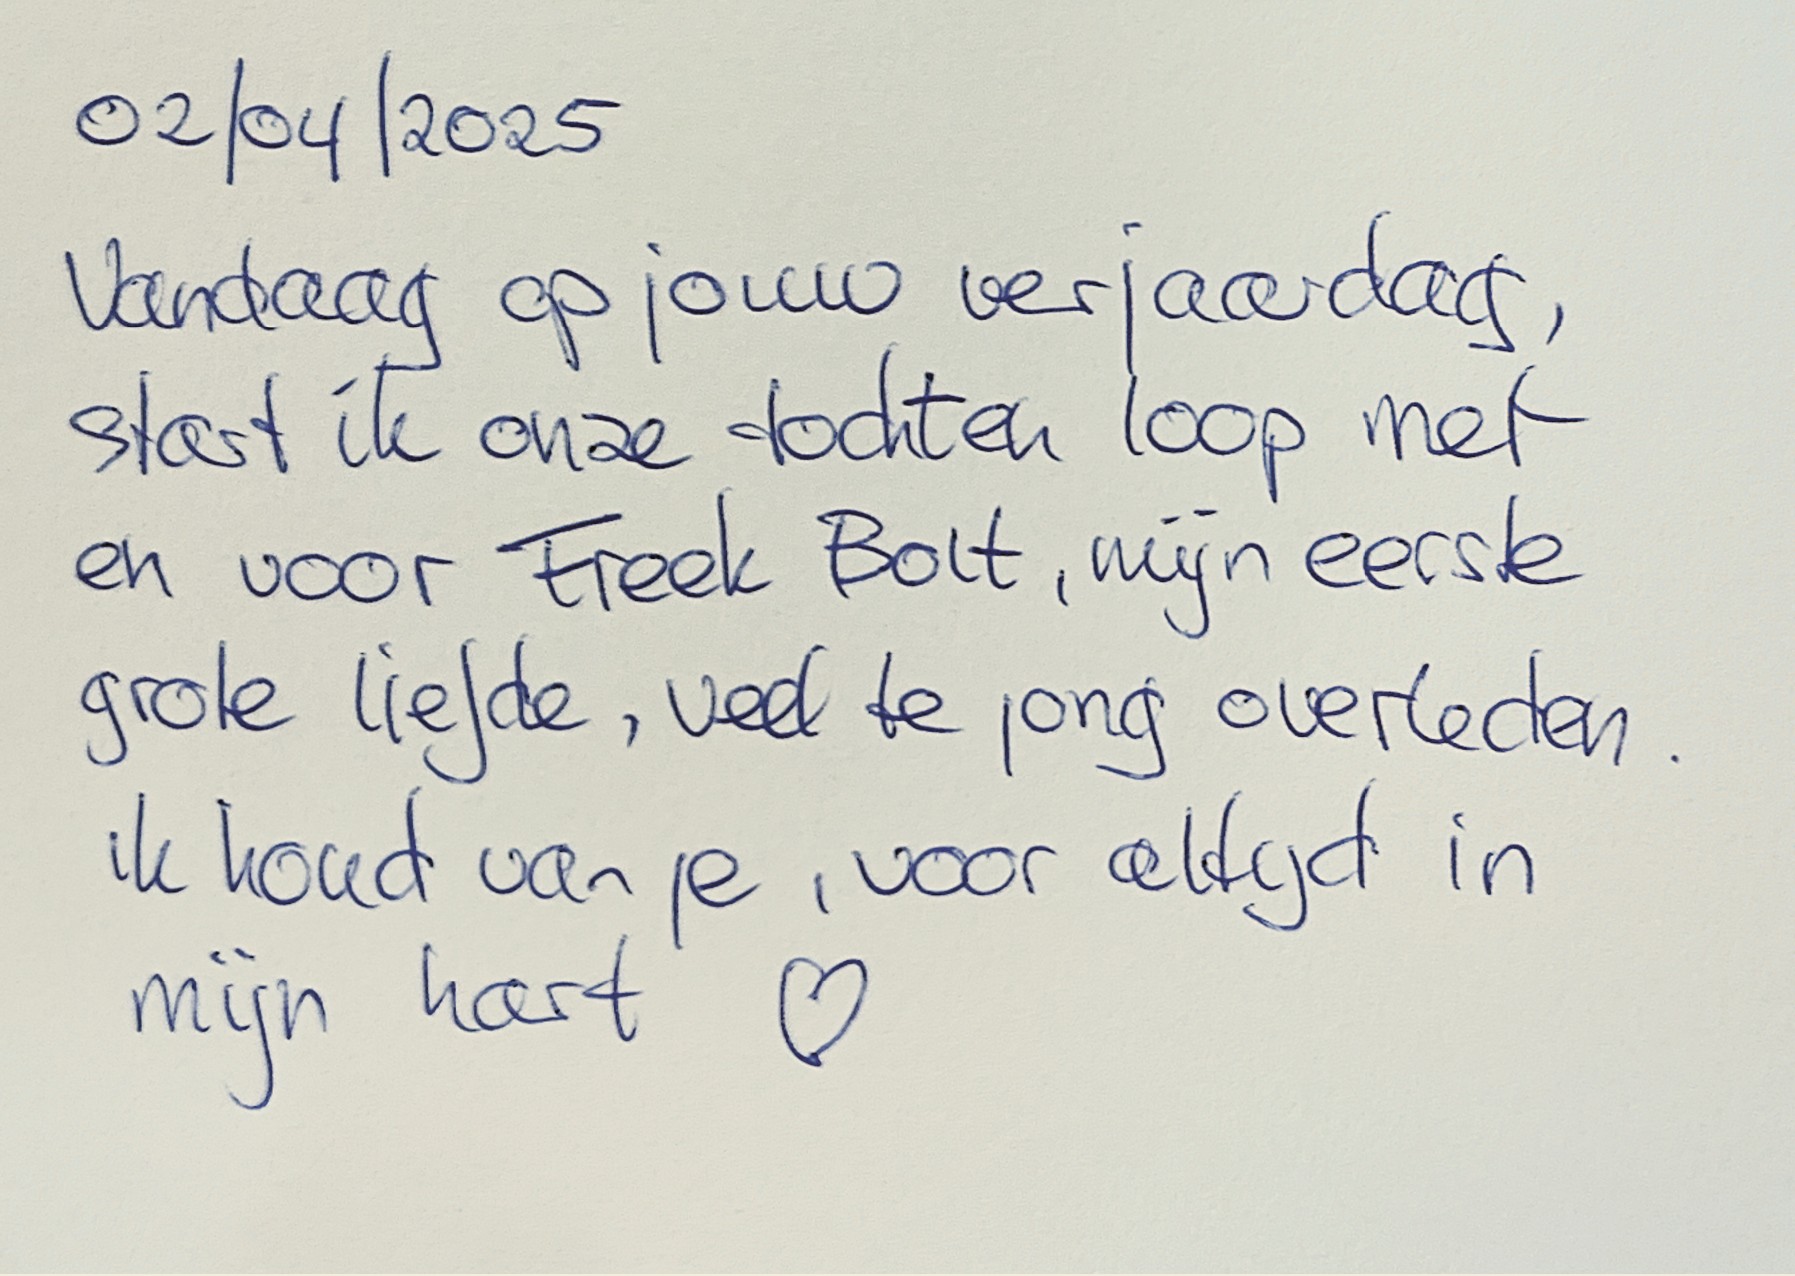 02/04/2025
Vandaag op jouw verjaardag,
start ik onze tochten loop met
en voor Freek Bolt, mijn eerste
grote liefde, veel te jong overleden.
ik houd van je, voor altijd in
mijn hart ♡